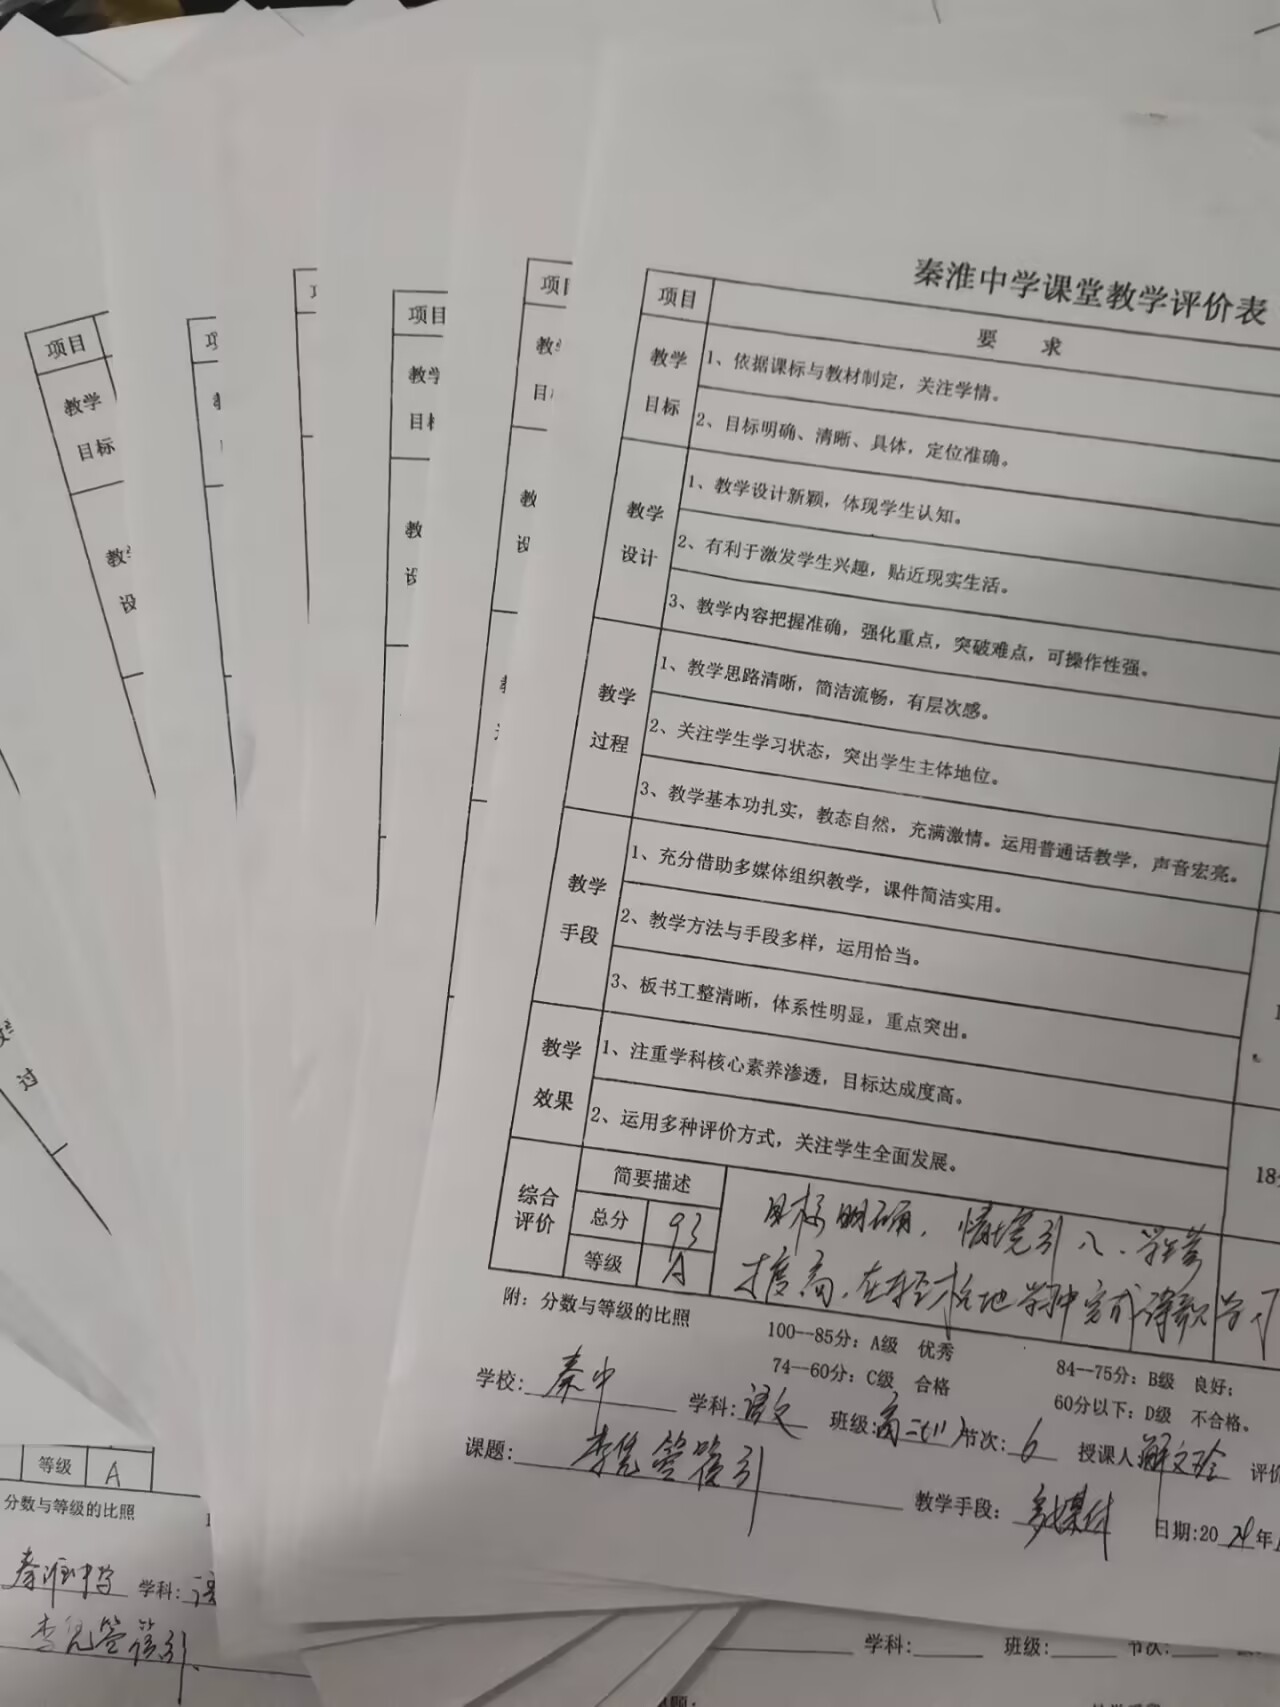 秦淮中学课堂教学评价表
项目
要 求
教学
目标
1、依据课标与教材制定，关注学情。
2、目标明确、清晰、具体，定位准确。
教学
设计
1、教学设计新颖，体现学生认知。
2、有利于激发学生兴趣，贴近现实生活。
3、教学内容把握准确，强化重点，突破难点，可操作性强。
教学
过程
1、教学思路清晰，简洁流畅，有层次感。
2、关注学生学习状态，突出学生主体地位。
3、教学基本功扎实，教态自然，充满激情。运用普通话教学，声音宏亮。
教学
手段
1、充分借助多媒体组织教学，课件简洁实用。
2、教学方法与手段多样，运用恰当。
3、板书工整清晰，体系性明显，重点突出。
教学
效果
1、注重学科核心素养渗透，目标达成度高。
2、运用多种评价方式，关注学生全面发展。
18
综合
评价
简要描述
总分 93
等级 A
目标明确，情境引入，学生参
度高，在轻松地学中完成诗歌学习
附：分数与等级的比照
100--85分：A级 优秀
84--75分：B级 良好；
74--60分：C级 合格
60分以下：D级 不合格。
学校：秦中 学科：语文 班级：高二 节次：6 授课人 解文 评价
课题：李凭箜篌引 教学手段：多媒体 日期：20 24年
项目
教学
目标
教
设
项目
教学
目
教
设
项
教
目
教
设
过
等级 A
分数与等级的比照
秦淮中学 学科：语
李凭箜篌引
学科： 班级： 节次：